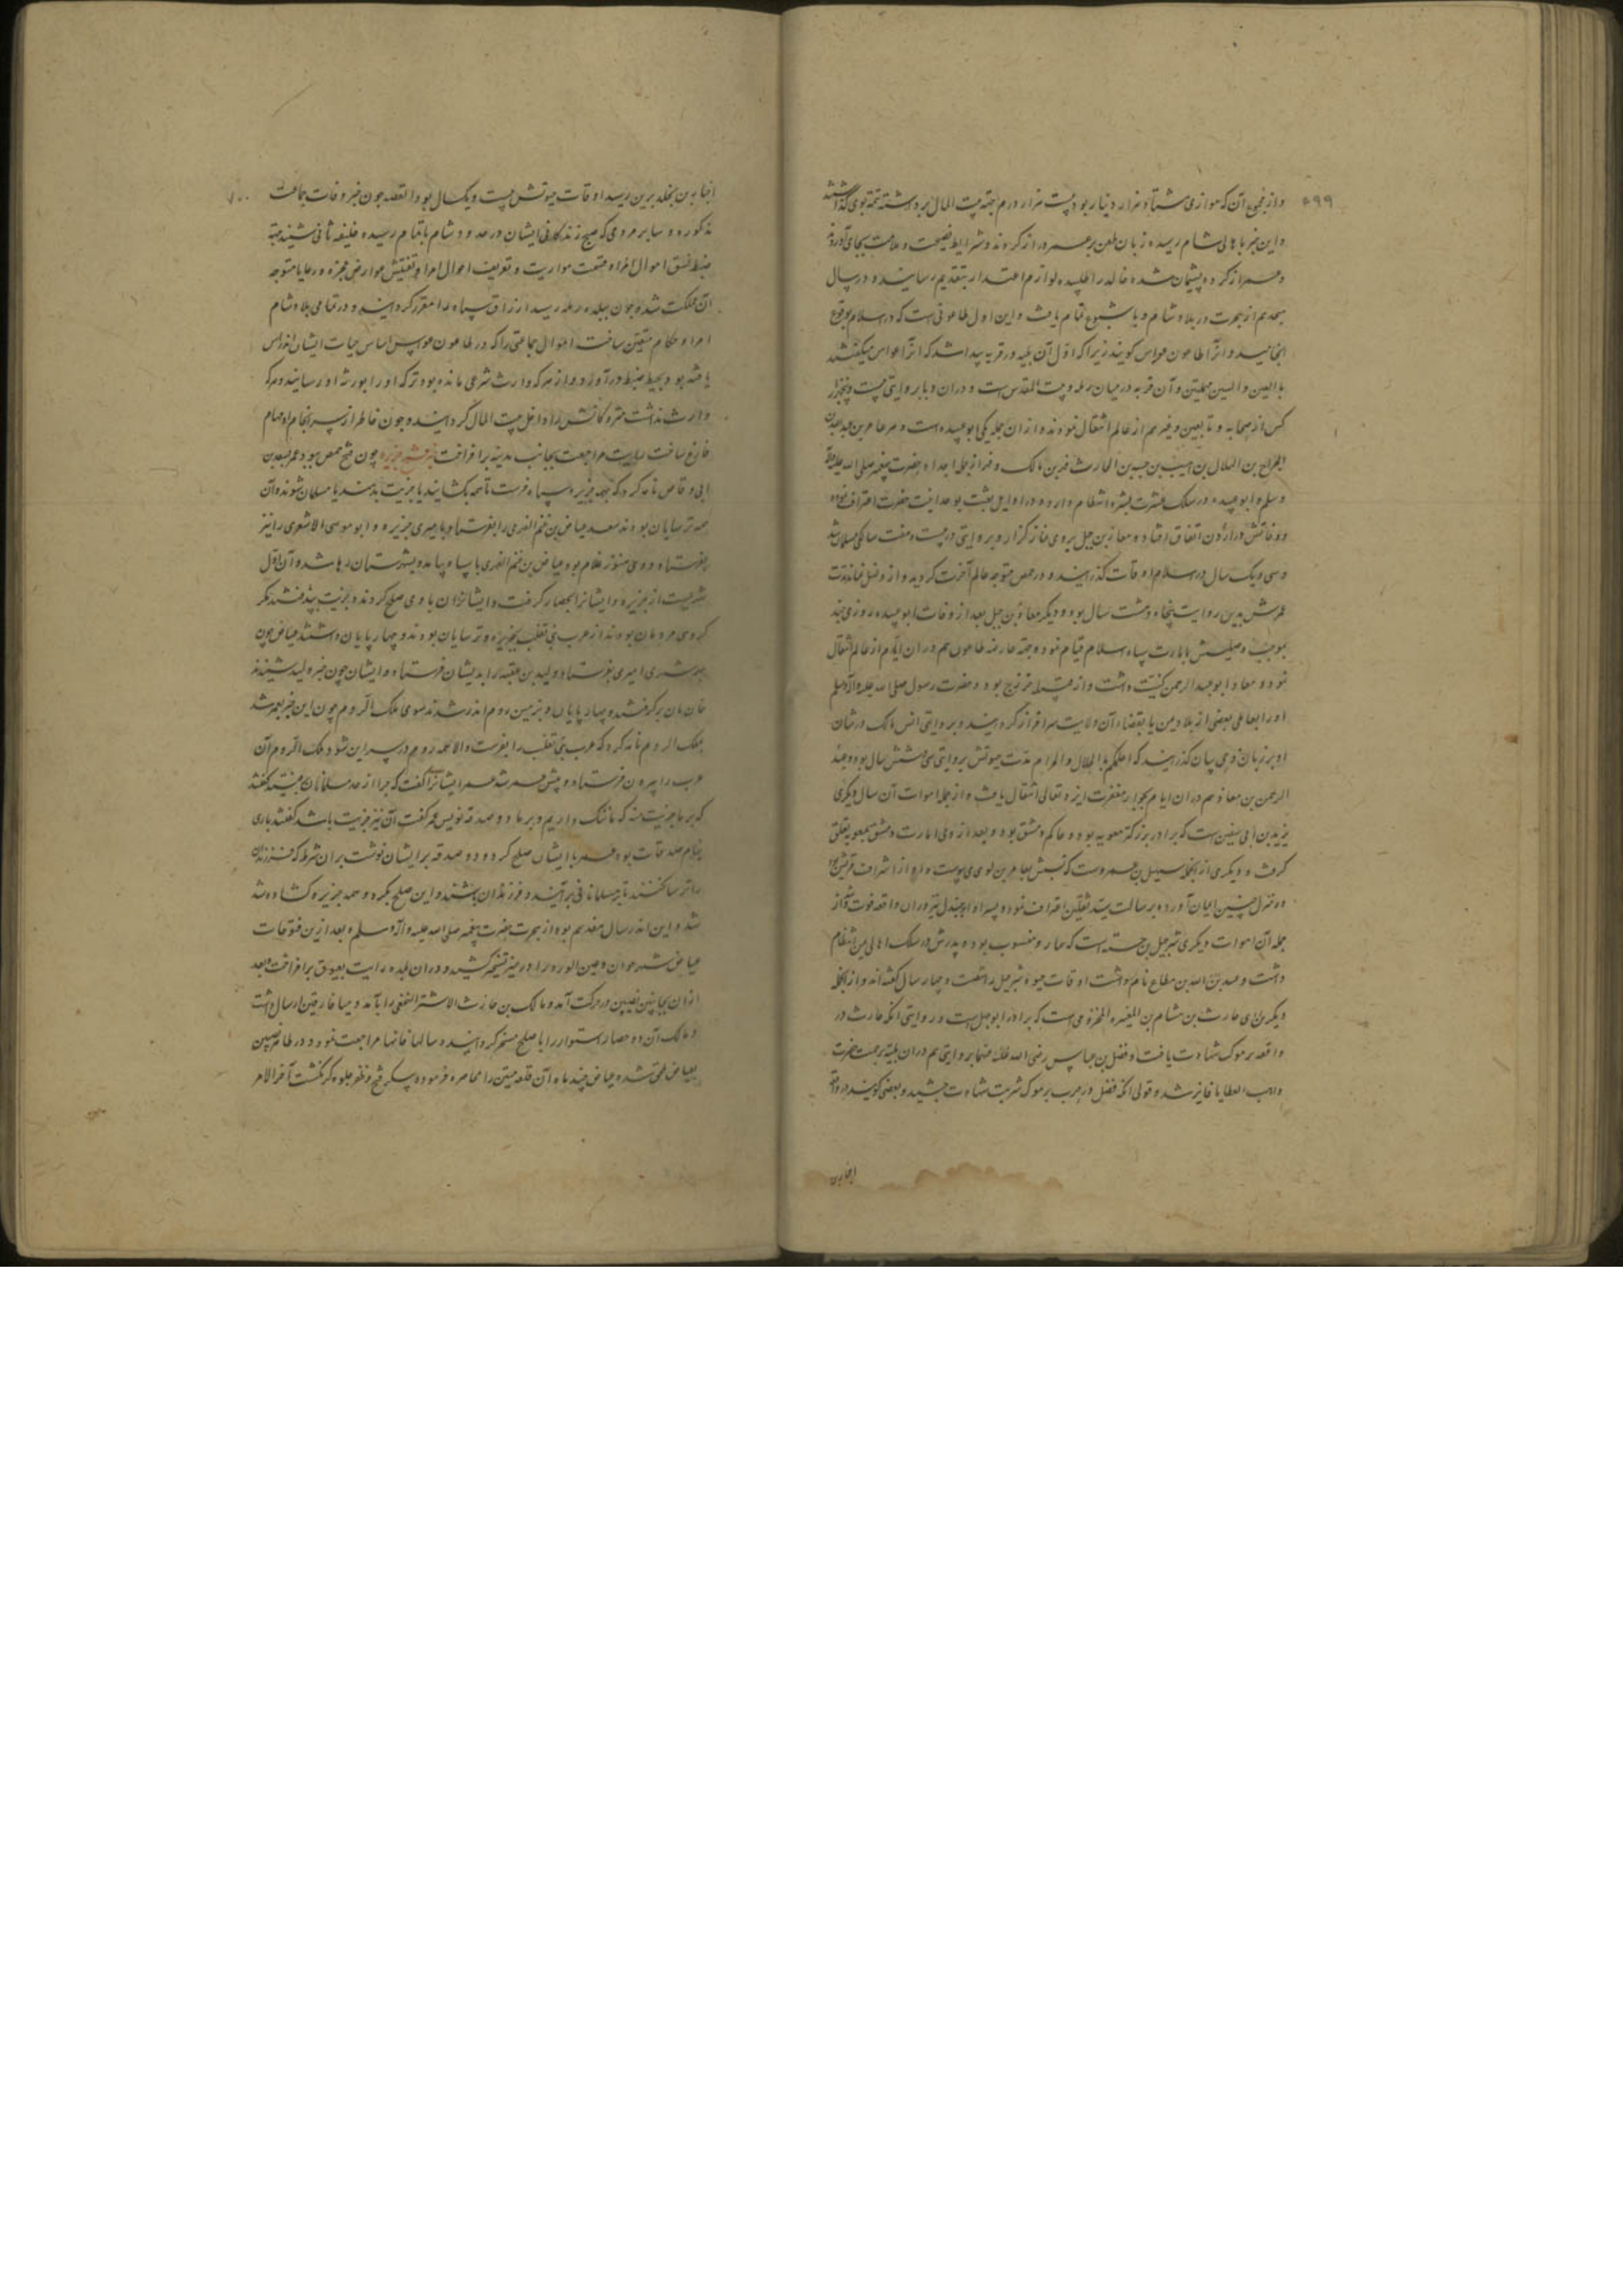 ۶۹۹
و از مجموع آن که موازی هشتاد هزار دینار بود بیست هزار درم بجهة بیت المال برداشته تتمه بوی گذاشتند
و این خبر باهالی شام رسیده زبان طعن بر عمر دراز کردند و شرایط نصیحت و ملامت بجای آوردند
و عمر از کرده پشیمان شده خالد را طلبیده لوازم اعتذار بتقدیم رسانید و در سال
هجدهم از هجرت در بلاد شام وبا شیوع تمام یافت و این اول طاعونی است که در اسلام بوقوع
انجامید و آنرا طاعون عمواس گویند زیرا که اول آن بلیه در قریه پیدا شد که آنرا عمواس میگفتند
بالعین و السین مهملتین و آن قریه در میان رمله و بیت المقدس است و دران وبا بروایتی بیست و پنجهزار
کس از صحابه و تابعین و غیرهم از عالم انتقال نمودند و ازان جمله یکی ابوعبیده است و هو عامر بن عبدالله بن
الجراح بن الهلال بن اهیب بن ضبه بن الحارث فهر بن مالک و فهر از جمله اجداد حضرت پیغمبر صلی الله علیه و آله
و سلم و ابوعبیده در سلک عشره مبشره انتظام دارد و در اوایل بعثت بوحدانیت حضرت اعتراف نموده
و وفاتش در اردن اتفاق افتاده معاذ بن جبل بروی نماز گزارد و بروایتی در بیست و هفت سالگی مسلمان شد
و سی و یک سال در اسلام اوقات گذرانید و در حمص متوجه عالم آخرت گردید و از وی نسل نماند مدت
عمرش بدین روایت پنجاه و هشت سال بود و دیگر معاذ بن جبل بعد از وفات ابوعبیده روزی چند
بموجب وصیتش بامارت سپاه اسلام قیام نمود و بجهة عارضه طاعون هم دران ایام از عالم انتقال
نمود و معاذ ابوعبدالرحمن کنیت داشت و از قبیله خزرج بود و حضرت رسول صلی الله علیه و آله و سلم
او را بعاملی بعضی از بلاد یمن یا بقضاء آن ولایت سرافراز گردانید و بروایتی انس مالک در شان
او بر زبان وحی بیان گذرانید که اعلمکم بالحلال و الحرام مدت حیوتش بروایتی سی و شش سال بود و عبد
الرحمن بن معاذ هم دران ایام بجوار مغفرت ایزد تعالی انتقال یافت و از جمله اموات آن سال دیگری
یزید بن ابی سفین است که برادر بزرگتر معویه بود و حاکم دمشق بود و بعد از وی امارت دمشق بمعویه تعلق
گرفت و دیگری از انجمله سهیل بن عمروست که نسبش بعامر بن لوی می پیوست و او از اشراف قریش بود
و در منزل حنین ایمان آورده برسالت سید ثقلین اعتراف نمود و پسر او ابوجندل نیز دران واقعه فوت شد و از
جمله آن اموات دیگری شرحبیل بن حسنه است که بمادر منسوب بود و پدرش در سلک اهالی یمن انتظام
داشت و عبدالله بن مطاع نام داشت اوقات حیوة شرحبیل را شصت و چهار سال گفته‌اند و از انجمله
دیگری حارث بن هشام بن المغیره المخزومی است که برادر ابوجهل است و روایتی آنکه حارث در
واقعه یرموک شهادت یافت و فضل بن عباس رضی الله عنهما بروایتی هم دران بلیه برحمت حضرت
واهب العطایا فایز شد و قولی آنکه فضل در حرب یرموک شربت شهادت چشید و بعضی گویند در واقعه
اجنادین
۷۰۰
اجنادین بخلد برین رسید اوقات حیوتش بیست و یکسال بود القصه چون خبر وفات جماعت
مذکوره و سایر مردمی که صبح زندگانی ایشان در حدود شام باتمام رسیده خلیفه ثانی شنید بجهة
ضبط و نسق اموال امراء و قسمت مواریث و تعریف احوال امرا و تفتیش عوارض عجزه و رعایا متوجه
آن مملکت شد و چون ببلده رمله رسید ارزاق سپاه را مقرر گردانید و در تمامی بلاد شام
امرا و حکام متعین ساخت اموال جماعتی را که در طاعون عمواس اساس حیات ایشان اندراس
یافته بود بحیطه ضبط درآورد و از هر که وارث شرعی مانده بود ترکه او را بورثه او رسانید و هر که
وارث نداشت متروکاتش را داخل بیت المال گردانید و چون خاطر از سرانجام مهام
فارغ ساخت رایت مراجعت بجانب مدینه برافراخت خبر فتح جزیره چون فتح حمص ببود عمر بسعد بن
ابی وقاص نامه کرد که بجهة جزیره سپاه فرست تا همه بکشایند یا جزیت بدهند یا مسلمان شوند و آن
همه ترسایان بودند سعد عیاض بن غنم الفهری را بفرستاد بامیری جزیره و ابوموسی الاشعری را نیز
بفرستاد و وی هنوز غلام بود عیاض بن غنم الفهری با سپاه بیامد و بشهرستان رها شد و آن اول
شهریست از جزیره و ایشانرا بحصار گرفت و ایشانزان با وی صلح کردند و جزیت بپذیرفتند مگر
گروهی مردمان بودند از عرب بنی تغلب بجزیره و ترسایان بودند و چهارپایان داشتند عیاض چون
بهر شهری امیری بفرستاد ولید بن عقبه را بدیشان فرستاد و ایشان چون خبر ولید شنیدند
خان مان برگرفتند و چهارپایان و بزمین روم اندر شدند سوی ملک الروم چون این خبر بعمر شد
بملک الروم نامه کرد که عرب بنی تغلب را بفرست و الا همه روم در سر این شود ملک الروم آن
عرب را بیرون فرستاد و پیش عمر شد عمر ایشانرا گفت که چرا از حد مسلمانان بجستید گفتند
که بر ما جزیت منه که ما ننگ داریم و بر ما دو صدقه نویس عمر گفت آن نیز جزیت باشد گفتند باری
بنام صدقات بود عمر با ایشان صلح کرد و دو صدقه برایشان نوشت بران شرط که فرزندان
را ترسا نکنند تا بر مسلمانی برآیند و فرزندان بهشتند و این صلح بکرد و همه جزیره کشاده شد
شد و این اندر سال هفدهم بود از هجرت حضرت پیغمبر صلی الله علیه و آله و سلم و بعد ازین فتوحات
عیاض شهر حران و عین الورد را در حیز تسخیر کشید و دران بلده رایت بعیوق برافراخت و بعد
ازان بجانب نصیبین در حرکت آمد و مالک بن حارث الاشتر النخعی را بآمد و میافارقین ارسال داشت
و مالک آن دو حصار استوار را با صلح مسخر گردانید و سالما غانما مراجعت نمود و در ظاهر نصیبین
بعیاض ملحق شده عیاض چند ماه آن قلعه متین را محاصره فرموده پیکر فتح و ظفر جلوه گر نگشت آخر الامر